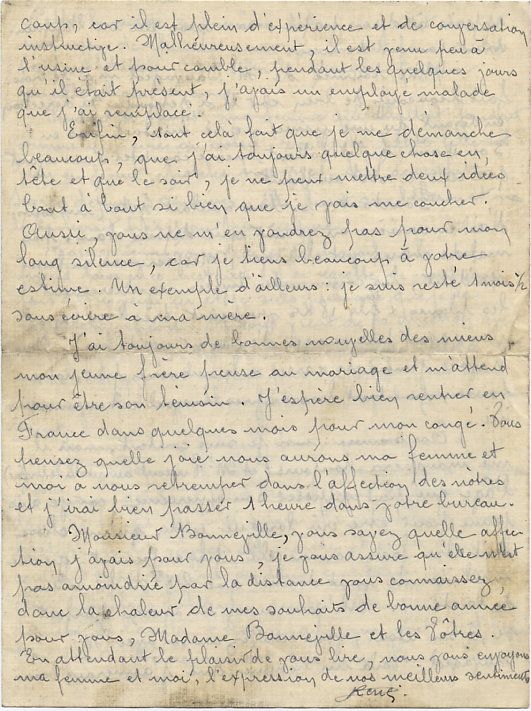 coup, car il est plein d'expérience et de conversation
instructive. Malheureusement, il est venu peu à
l'usine et pour comble, pendant les quelques jours
qu'il était présent, j'avais un employé malade
que j'ai remplacé.
Enfin, tout celà fait que je me démanche
beaucoup, que j'ai toujours quelque chose en
tête et que le soir, je ne peux mettre deux idées
bout à bout si bien que je vais me coucher.
Aussi, vous ne m'en voudrez pas pour mon
long silence, car je tiens beaucoup à votre
estime. Un exemple d'ailleurs : je suis resté 1 mois 1/2
sans écrire à ma mère.
J'ai toujours de bonnes nouvelles des miens,
mon jeune frère pense au mariage et m'attend
pour être son témoin. J'espère bien rentrer en
France dans quelques mois pour mon congé. Vous
pensez quelle joie nous aurons ma femme et
moi à nous retremper dans l'affection des nôtres
et j'irai bien passer 1 heure dans votre bureau.
Monsieur Banneville, vous savez quelle affec-
tion j'avais pour vous, je vous assure qu'elle n'est
pas amoindrie par la distance vous connaissez
donc la chaleur de mes souhaits de bonne année
pour vous, Madame Banneville et les Vôtres.
En attendant le plaisir de vous lire, nous vous envoyons
ma femme et moi, l'expression de nos meilleurs sentiments
René.